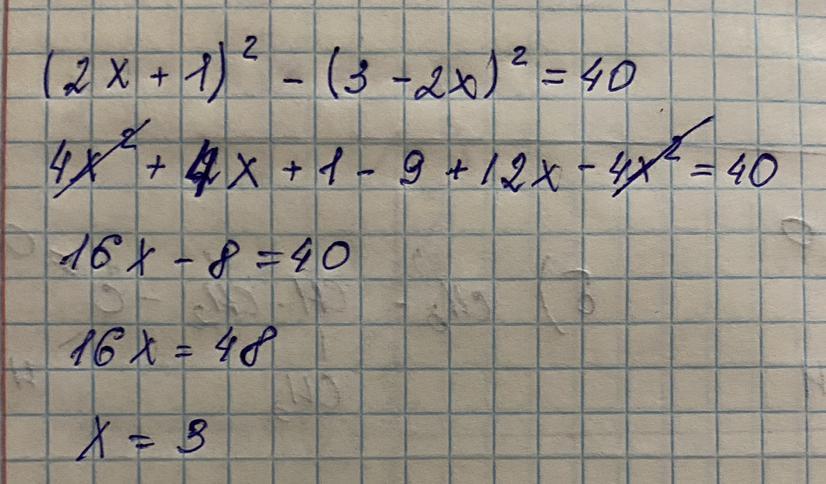 (2x + 1)² - (3 - 2x)² = 40
4x² + 4x + 1 - 9 + 12x - 4x² = 40
16x - 8 = 40
16x = 48
x = 3